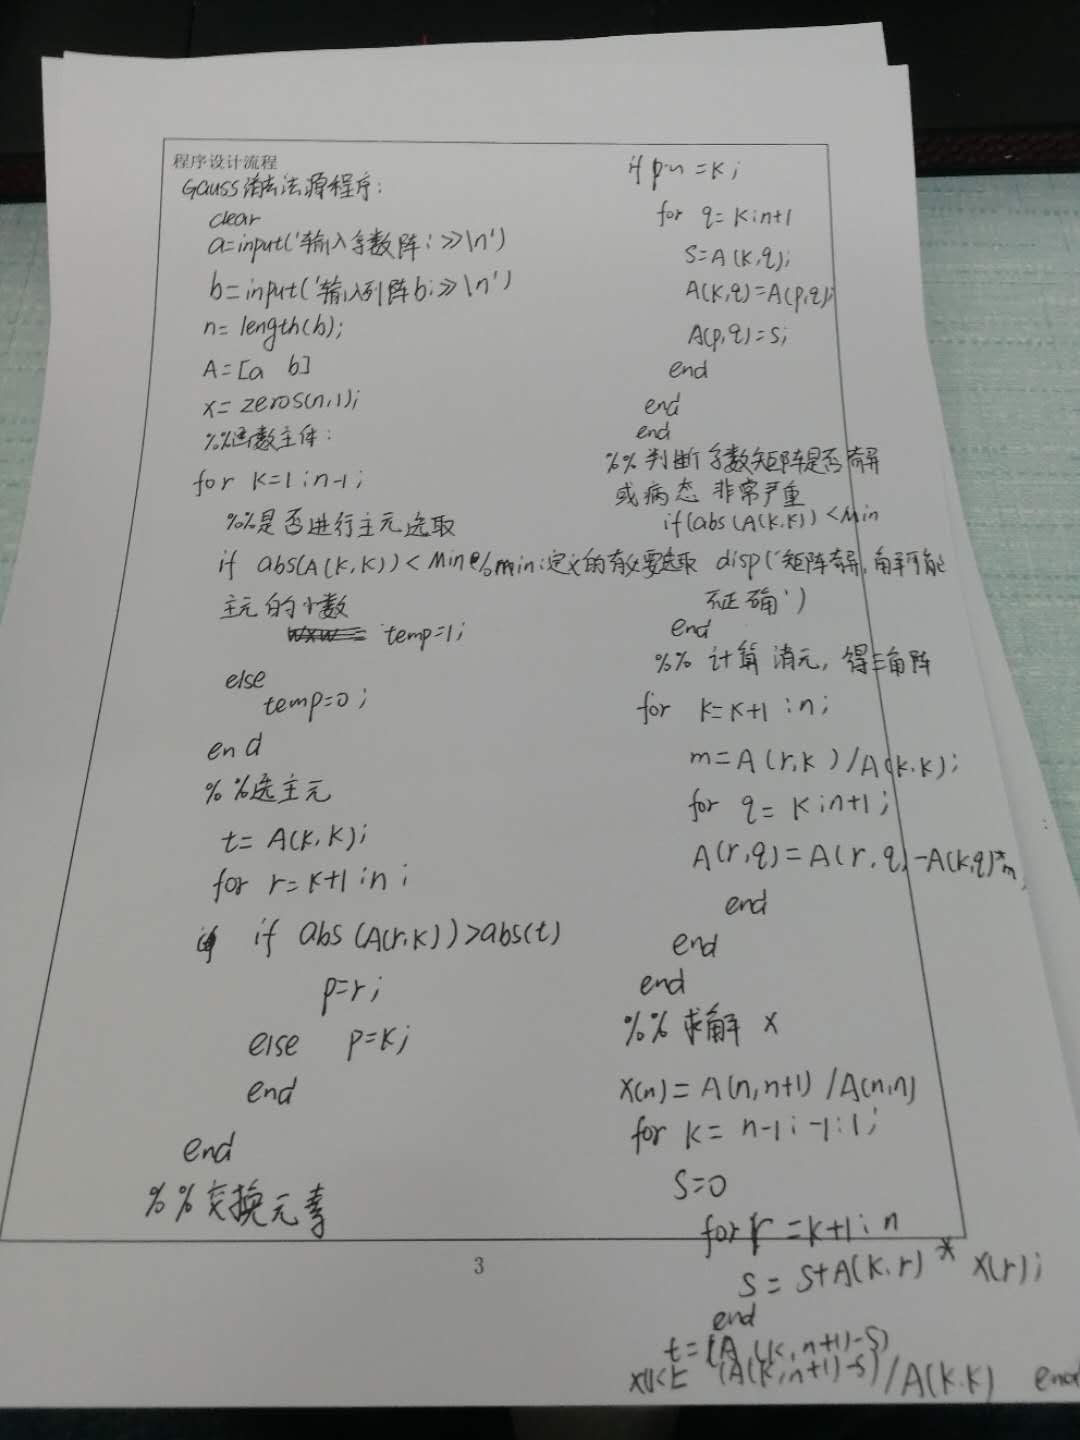 程序设计流程
Gauss消去法源程序:
clear
a=input('输入系数阵:>>\n')
b=input('输入列阵b:>>\n')
n=length(b);
A=[a b]
x=zeros(n,1);
%%函数主体:
for k=1:n-1;
%%是否进行主元选取
if abs(A(k,k))<Min %min:定义的有必要选取
主元的小数
temp=1;
else
temp=0;
end
%%选主元
t=A(k,k);
for r=k+1:n;
if abs(A(r,k))>abs(t)
p=r;
else p=k;
end
end
%%交换元素
3
if p~=k;
for q=k:n+1
S=A(k,q);
A(k,q)=A(p,q);
A(p,q)=S;
end
end
end
%%判断系数矩阵是否奇异
或病态非常严重
if(abs(A(k,k))<Min
disp('矩阵奇异,解可能
不正确')
end
%%计算消元,得三角阵
for k=k+1:n;
m=A(r,k)/A(k,k);
for q=k:n+1;
A(r,q)=A(r,q)-A(k,q)*m;
end
end
end
%%求解x
x(n)=A(n,n+1)/A(n,n)
for k=n-1:-1:1;
S=0
for r=k+1:n
S=S+A(k,r)*x(r);
end
t=(A(k,n+1)-S)
(A(k,n+1)-S)/A(k,k) end